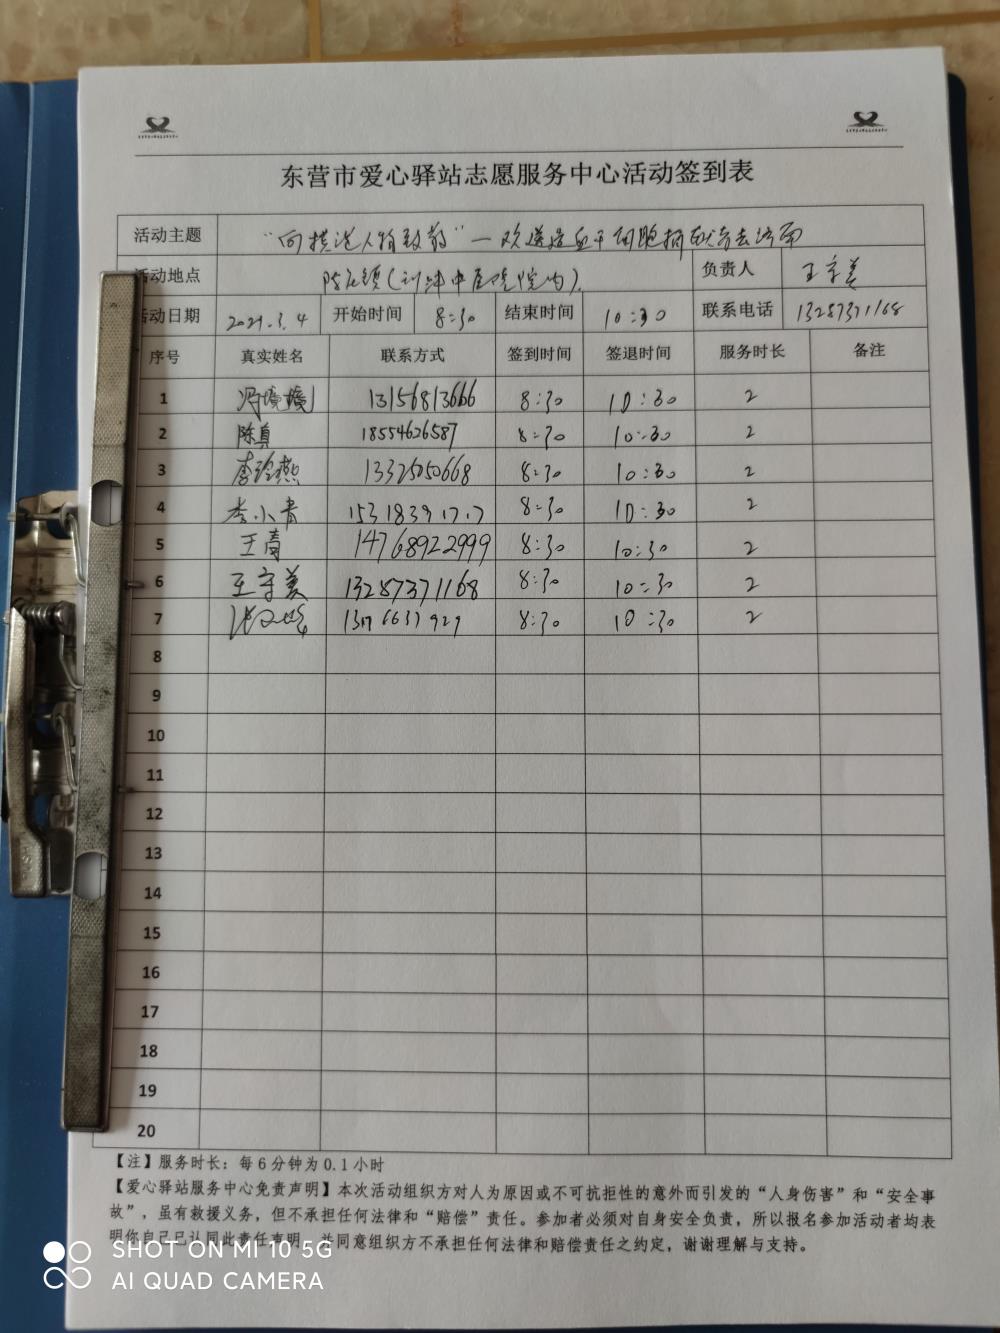 东营市爱心驿站志愿服务中心活动签到表
活动主题 "向模范人物致敬"—欢送造血干细胞捐献者去济南
活动地点 (利津中医院院内) 负责人 王守美
活动日期 2021.3.4 开始时间 8:30 结束时间 10:30 联系电话 13287371168
序号 真实姓名 联系方式 签到时间 签退时间 服务时长 备注
1 13156813666 8:30 10:30 2
2 陈真 18554626587 8:30 10:30 2
3 李玲燕 13325050668 8:30 10:30 2
4 李小青 15318391717 8:30 10:30 2
5 王青 14768922999 8:30 10:30 2
6 王守美 13287371168 8:30 10:30 2
7 8:30 10:30 2
8
9
10
11
12
13
14
15
16
17
18
19
20
【注】服务时长：每6分钟为0.1小时
【爱心驿站服务中心免责声明】本次活动组织方对人为原因或不可抗拒性的意外而引发的“人身伤害”和“安全事
故”，虽有救援义务，但不承担任何法律和“赔偿”责任。参加者必须对自身安全负责，所以报名参加活动者均表
明你自己已认同此责任声明，并同意组织方不承担任何法律和赔偿责任之约定，谢谢理解与支持。
SHOT ON MI 10 5G
AI QUAD CAMERA